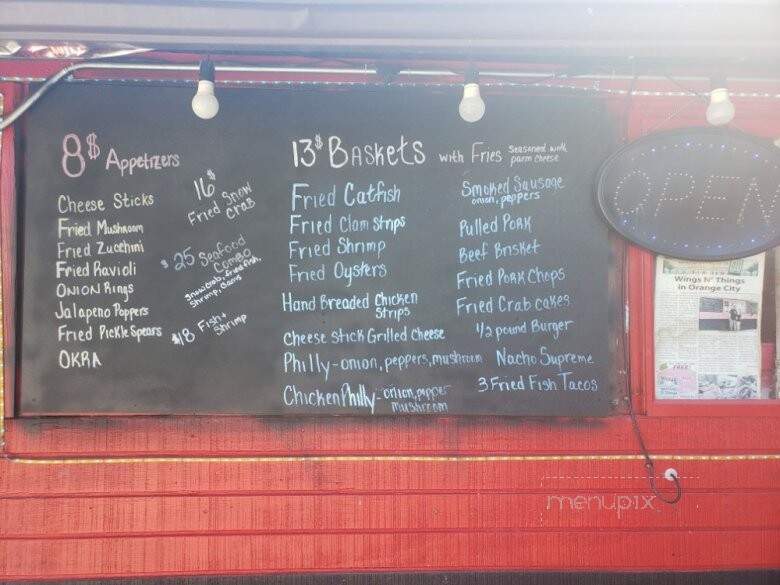 8$ Appetizers
Cheese Sticks
Fried Mushroom
Fried Zucchini
Fried Ravioli
Onion Rings
Jalapeno Poppers
Fried Pickle Spears
OKRA
16$
Fried Snow
Crab
$25 Seafood
Combo
Snow crab, fried fish,
Shrimp,
$18 Fish+
Shrimp
13$ Baskets with Fries Seasoned with
parm cheese
Fried Catfish
Fried Clam strips
Fried Shrimp
Fried Oysters
Hand Breaded Chicken
Strips
cheese stick Grilled Cheese
Philly-onion, peppers, mushroom
Chicken Philly-onion, pepper
mushroom
Smoked Sausage
onion, peppers
Pulled Pork
Beef Brisket
Fried Pork Chops
Fried Crab cakes
1/2 pound Burger
Nacho Supreme
3 Fried Fish Tacos
OPEN
Wings N' Things
in Orange City
FREE
menupix